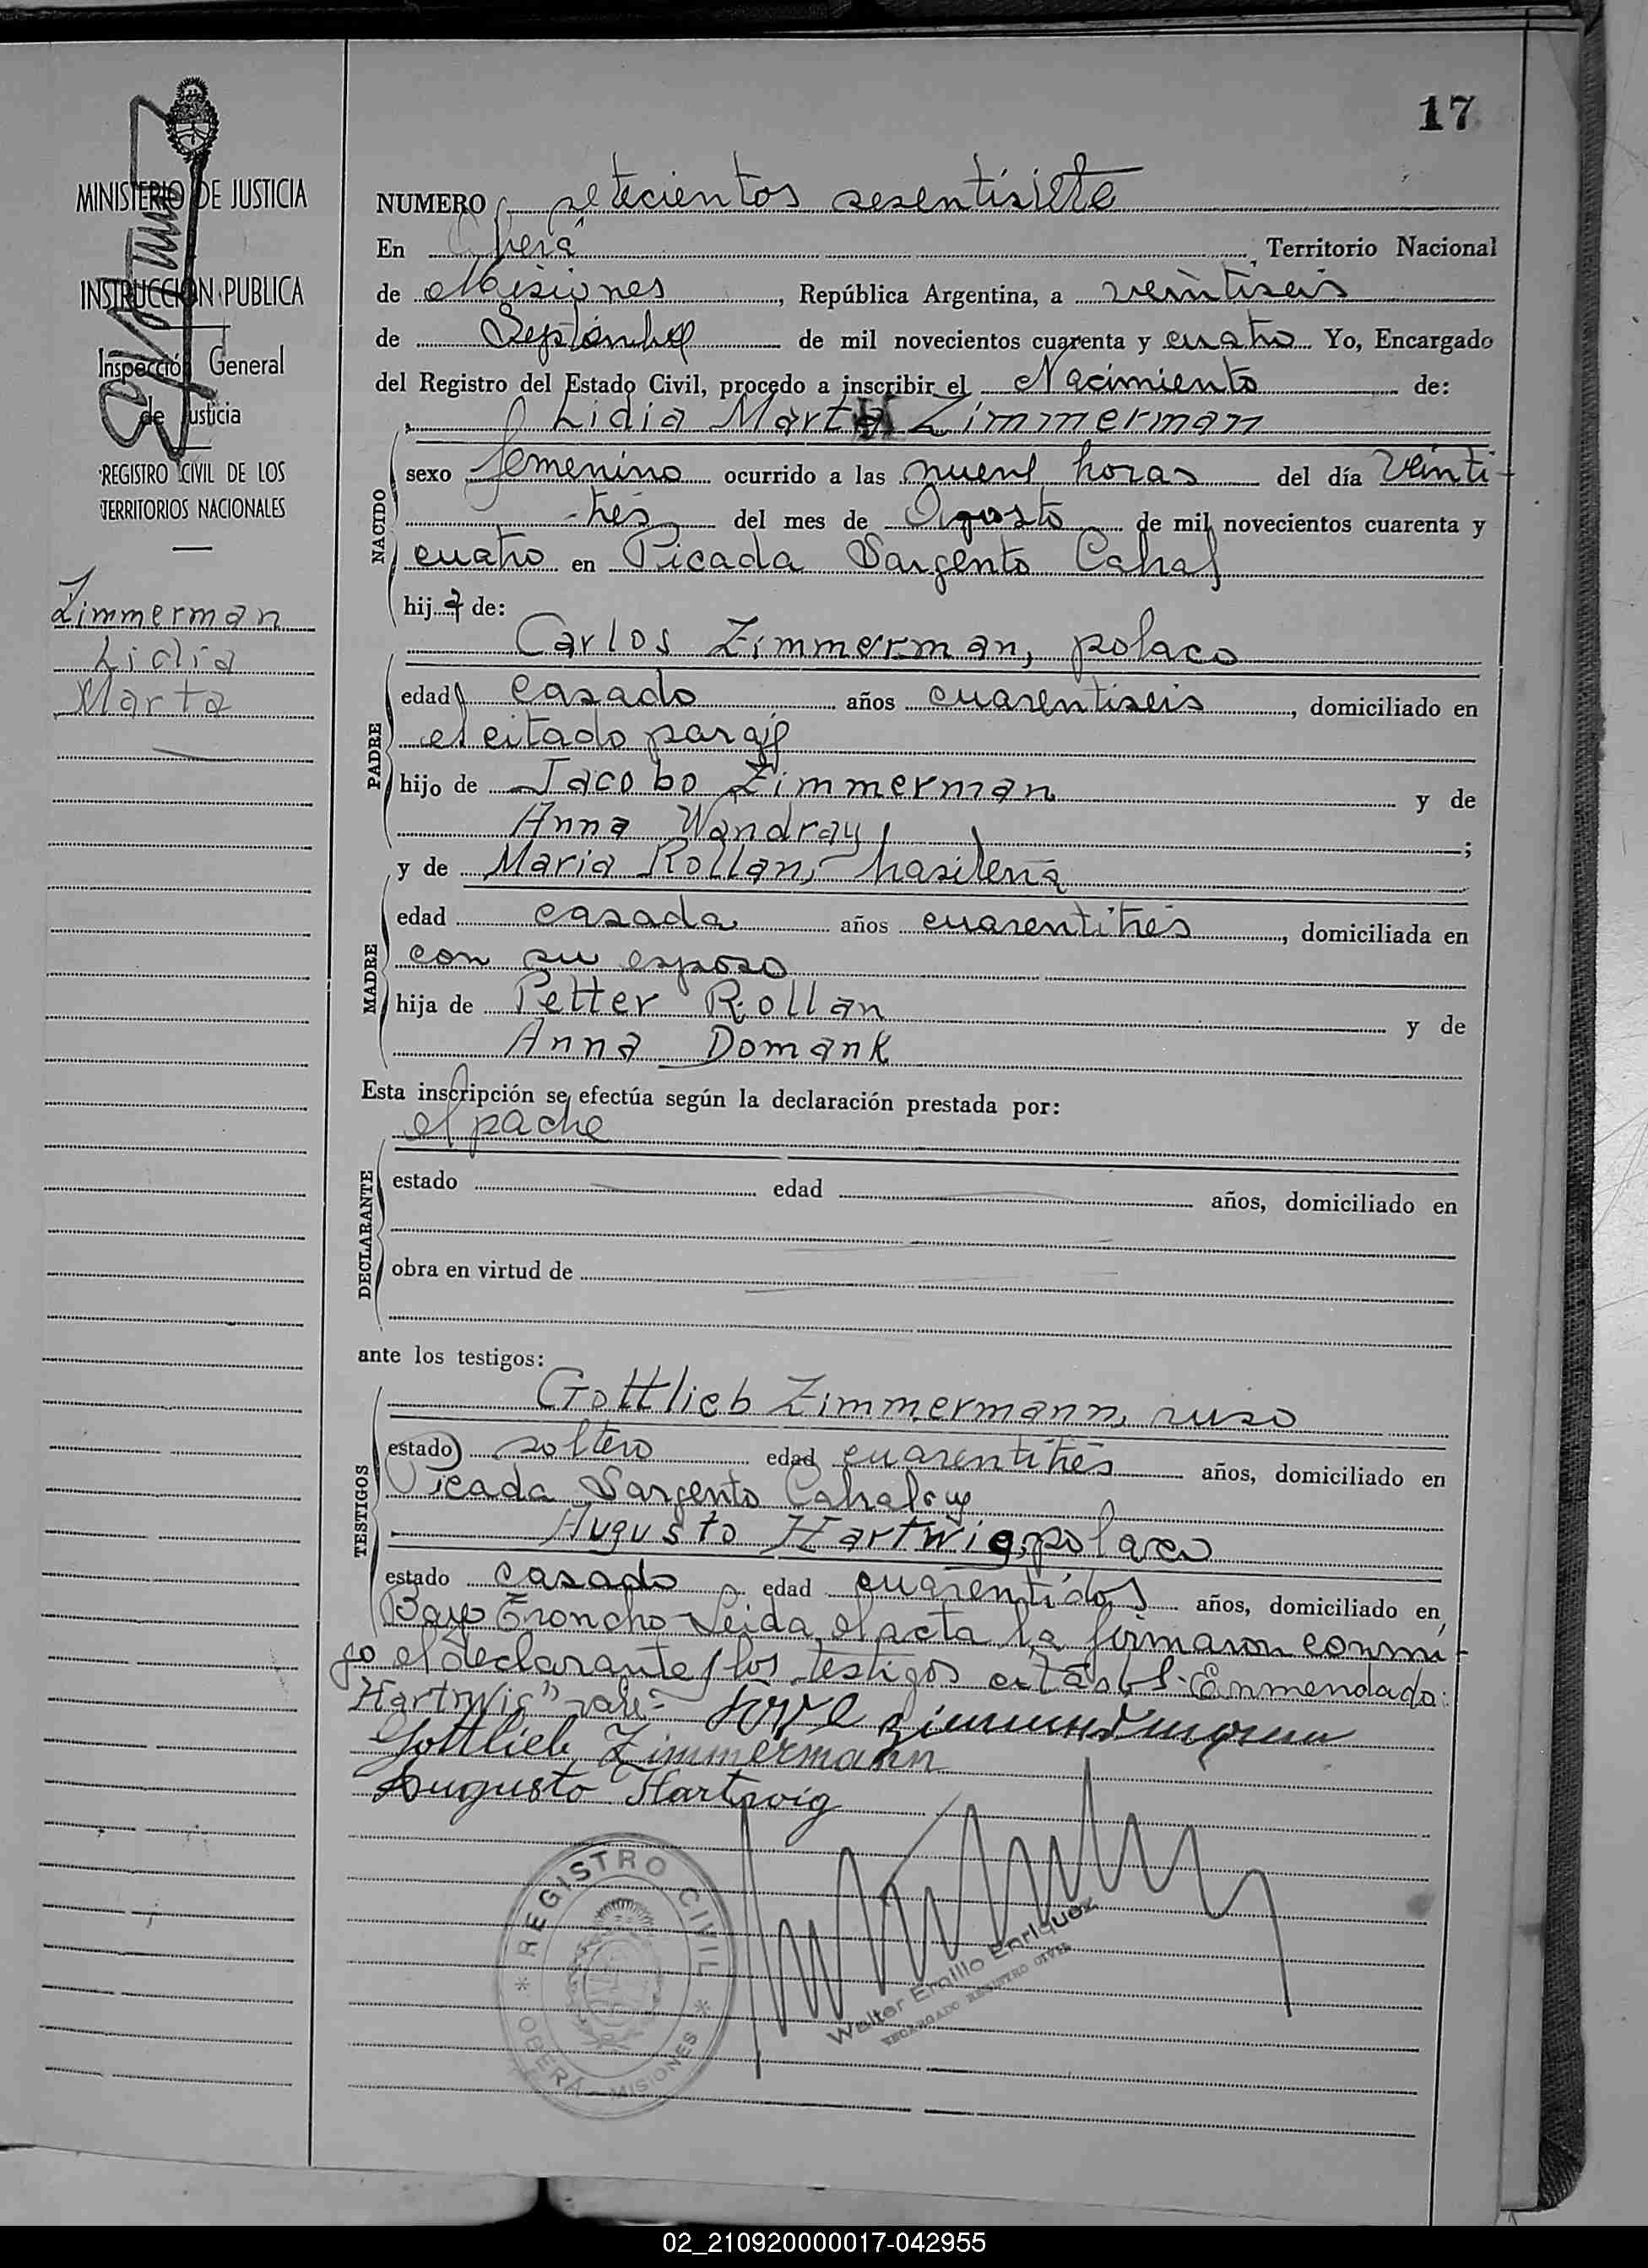 17
MINISTERIO DE JUSTICIA
INSTRUCCION PUBLICA
Inspección General
de Justicia
REGISTRO CIVIL DE LOS
TERRITORIOS NACIONALES
Zimmerman
Lidia
Marta
NUMERO setecientos sesentisiete
En Oberá, Territorio Nacional
de Misiones, República Argentina, a veintiseis
de Septiembre de mil novecientos cuarenta y cuatro Yo, Encargado
del Registro del Estado Civil, procedo a inscribir el Nacimiento de:
Lidia Marta Zimmerman
NACIDO
sexo femenino ocurrido a las nueve horas del día veinti-
trés del mes de Agosto de mil novecientos cuarenta y
cuatro en Picada Sargento Cabral
hija de:
PADRE
Carlos Zimmerman, polaco
edad casado años cuarentiseis, domiciliado en
el citado paraje
hijo de Jacobo Zimmerman y de
Anna Wandray;
MADRE
y de Maria Rollan, brasileña
edad casada años cuarentitrés, domiciliada en
con su esposo
hija de Petter Rollan y de
Anna Domank
Esta inscripción se efectúa según la declaración prestada por:
DECLARANTE
el padre
estado edad años, domiciliado en
obra en virtud de
ante los testigos:
TESTIGOS
Gottlieb Zimmermann, ruso
estado soltero edad cuarentitrés años, domiciliado en
Picada Sargento Cabral y
Augusto Hartwig, polaco
estado casado edad cuarentidos años, domiciliado en
Bajo Troncho- Leida el acta la firmaron conmi-
go el declarante y los testigos citados. Enmendado:
Hartwig" vale-
Gottlieb Zimmermann
Augusto Hartwig
REGISTRO CIVIL
OBERÁ - MISIONES
Walter Emilio Enriquez
ENCARGADO REGISTRO CIVIL
02_210920000017-042955